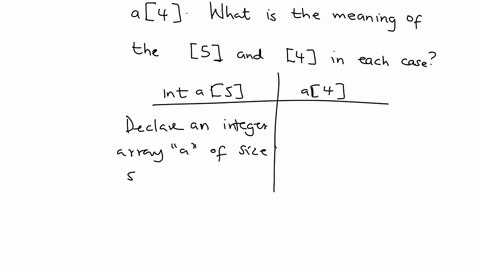 a[4]. What is the meaning of
the [5] and [4] in each case?
int a[5] a[4]
Declare an integer
array "a" of size
5